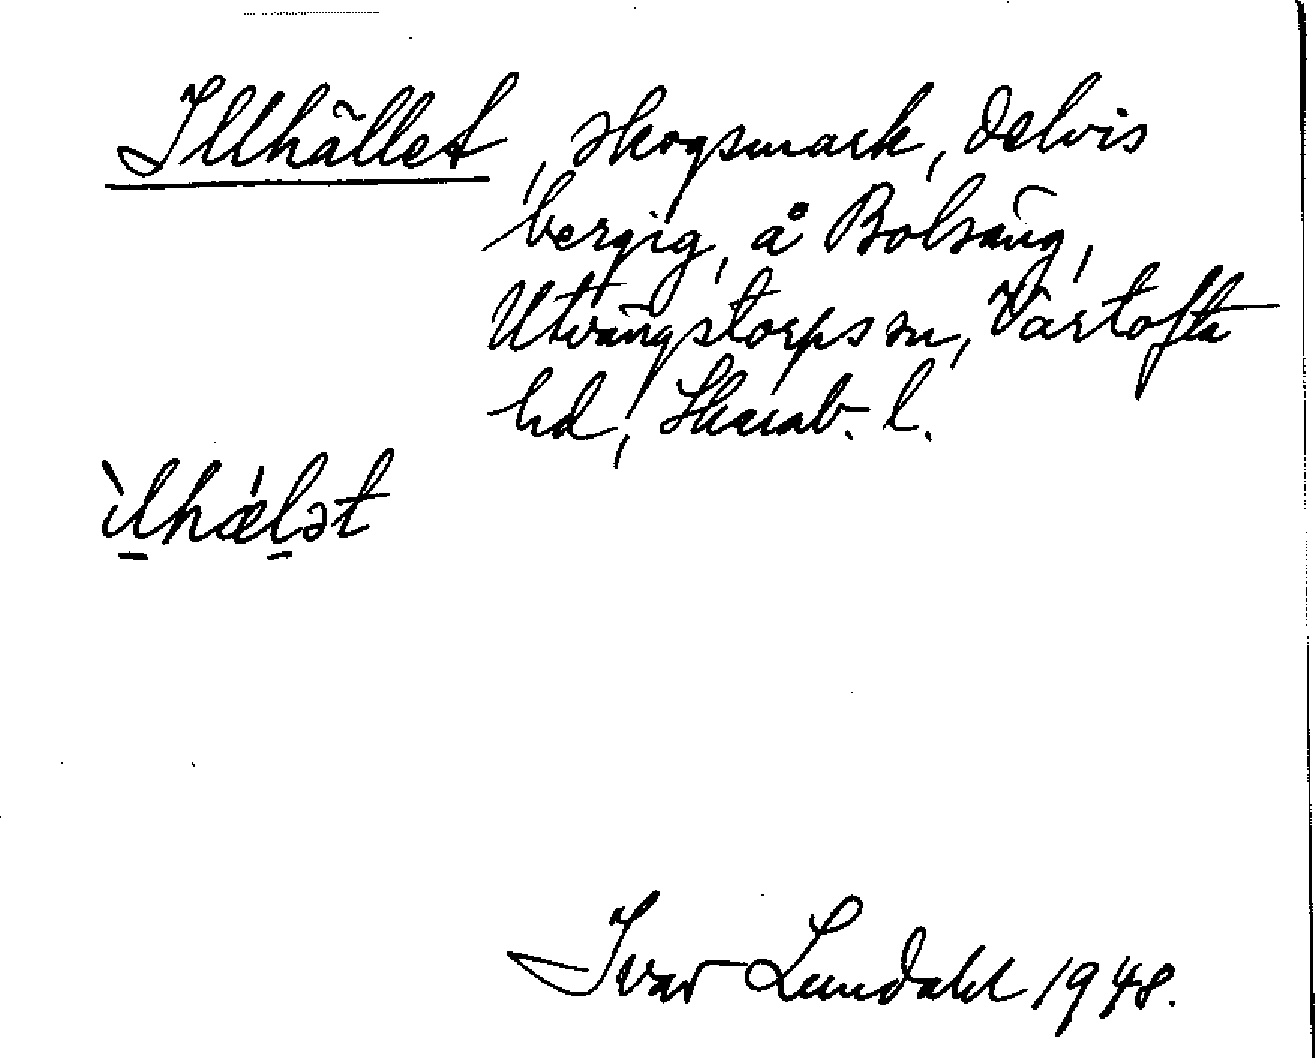 Illhället, skogsmark, delvis
bergig, å Bolsäng,
Utvängstorps sn, Vartofta
hd, Skarab. l.
ìl̠hǽl̠ət
Ivar Lundahl 1948.